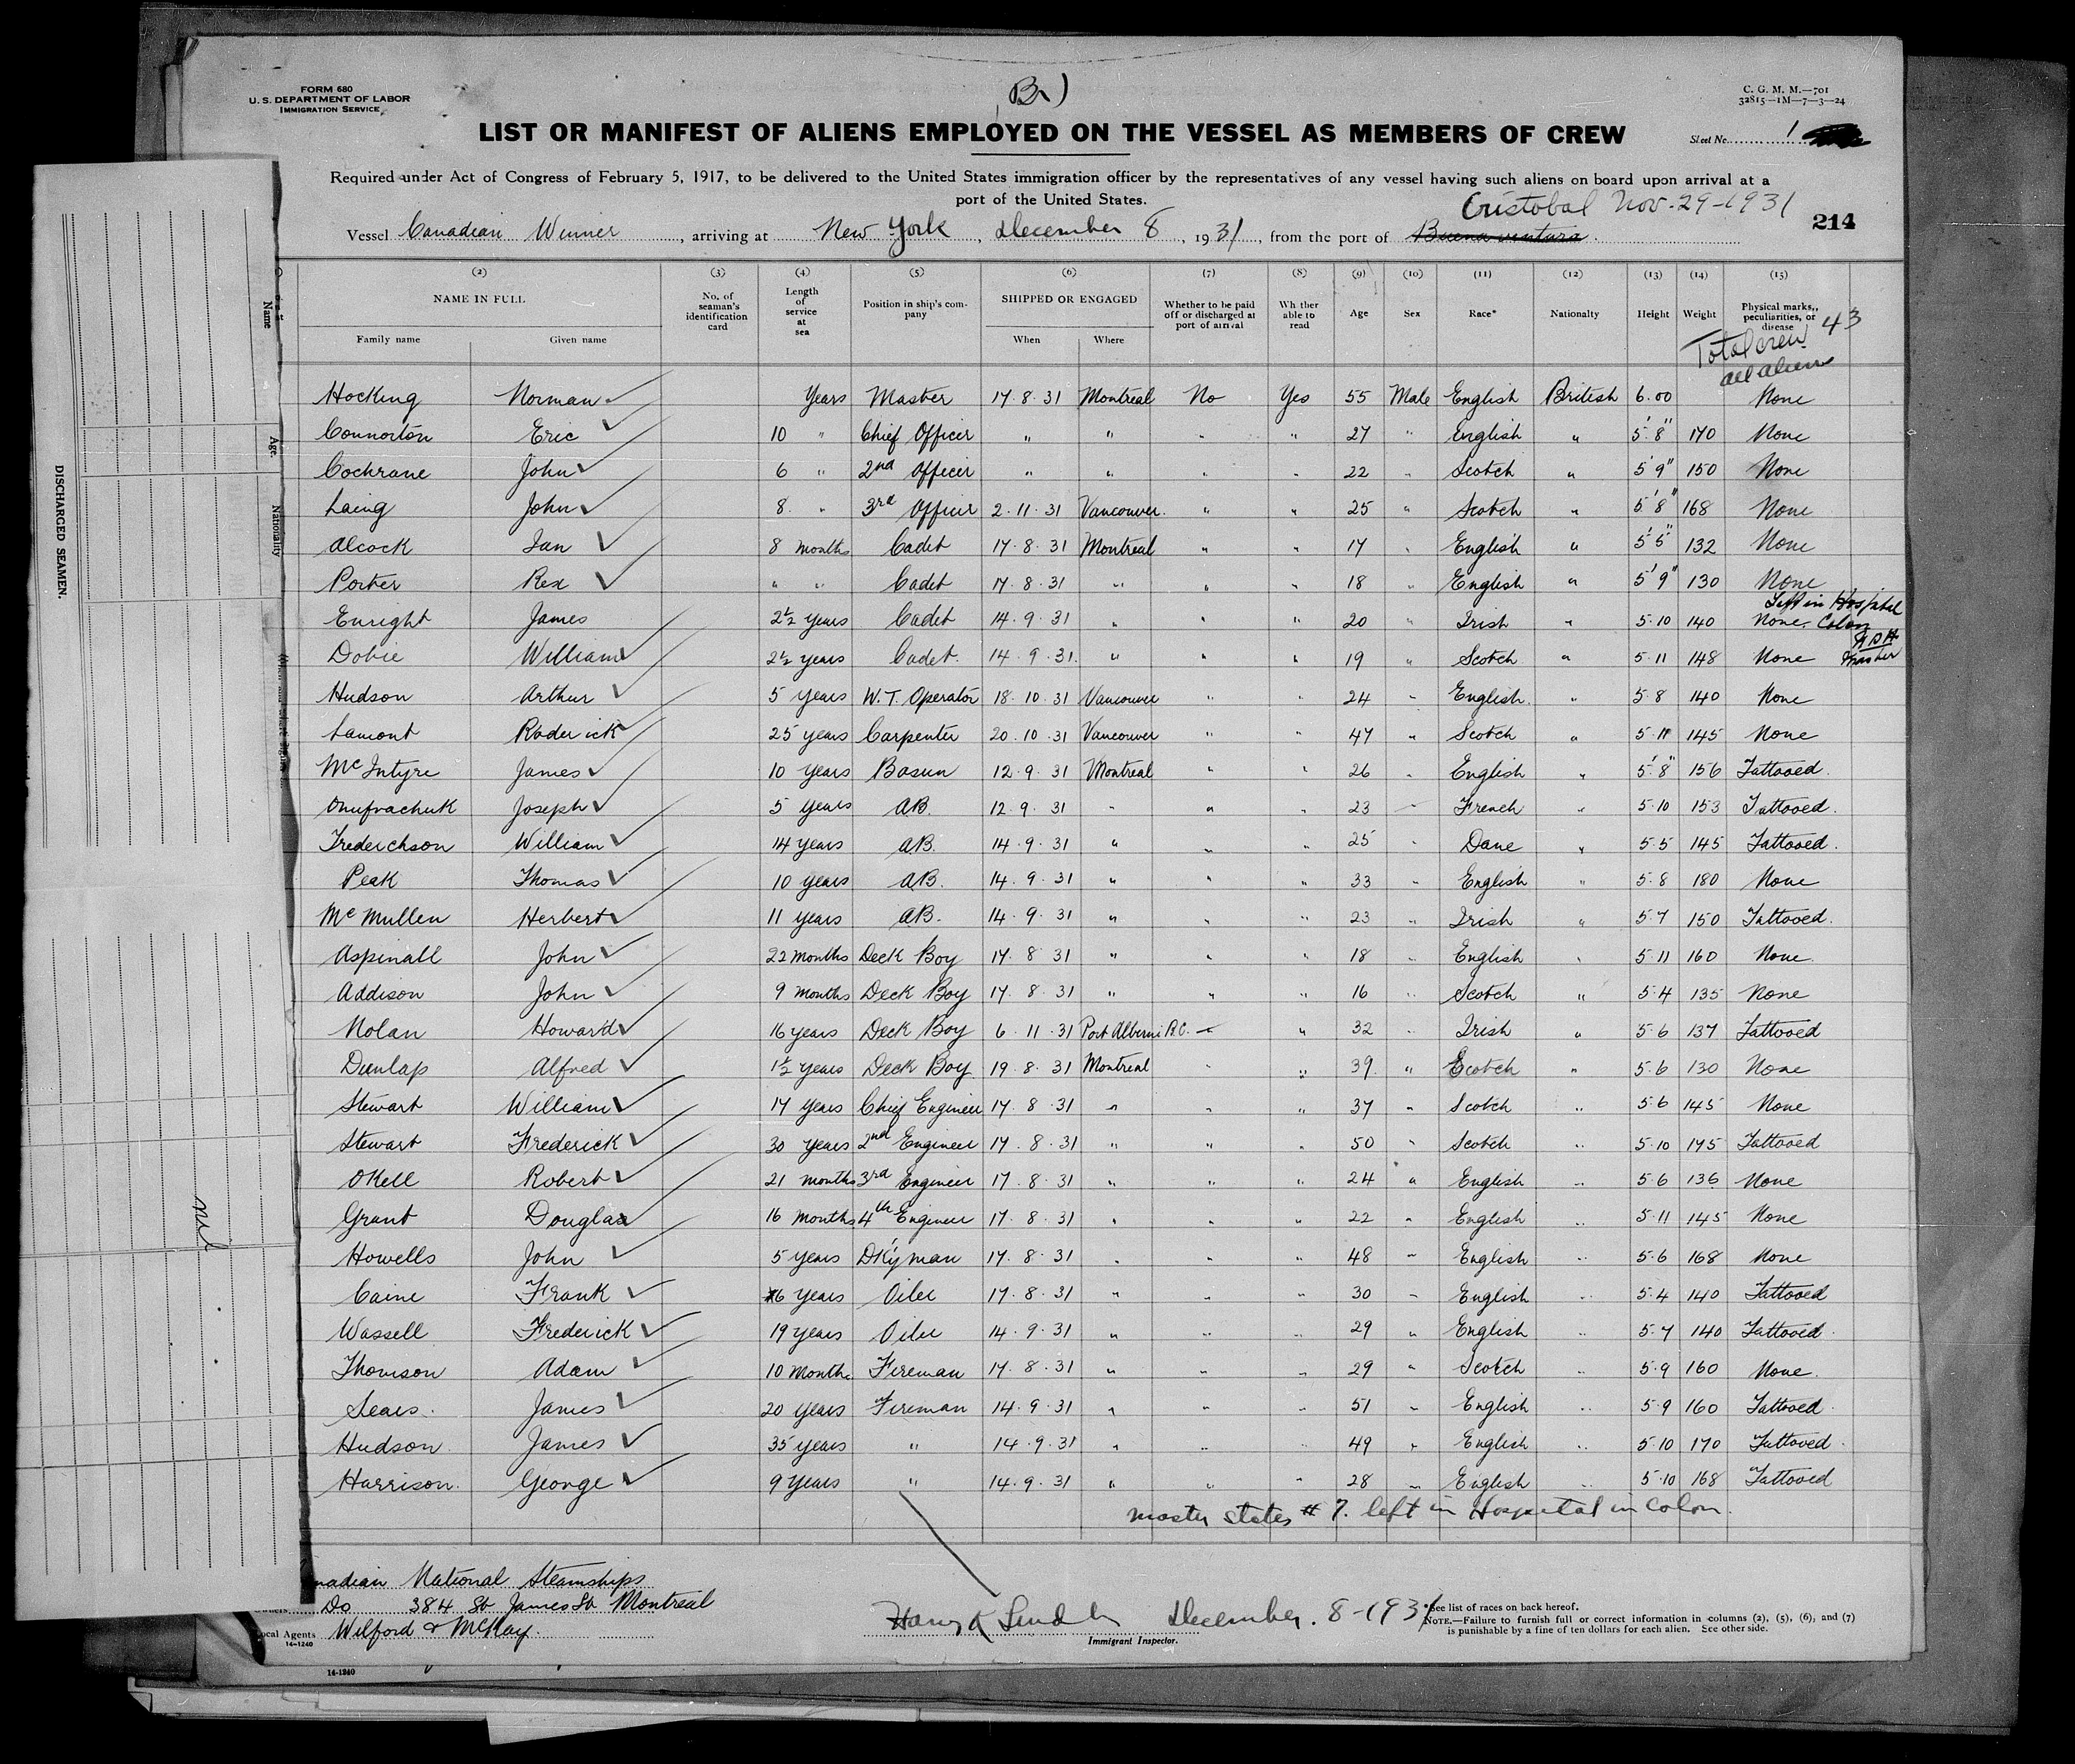 FORM 680
U. S. DEPARTMENT OF LABOR
IMMIGRATION SERVICE
Br)
C. G. M. M.—701
32815—1M—7—3—24
LIST OR MANIFEST OF ALIENS EMPLOYED ON THE VESSEL AS MEMBERS OF CREW
Sheet No. 1
Required under Act of Congress of February 5, 1917, to be delivered to the United States immigration officer by the representatives of any vessel having such aliens on board upon arrival at a
port of the United States.
Cristobal Nov-29-1931
Vessel Canadian Winner, arriving at New York, December 8, 1931, from the port of Buenaventura
214
(2) (3) (4) (5) (6) (7) (8) (9) (10) (11) (12) (13) (14) (15)
NAME IN FULL Family name Given name
No. of seaman's identification card
Length of service at sea
Position in ship's company
SHIPPED OR ENGAGED When Where
Whether to be paid off or discharged at port of arrival
Whether able to read
Age Sex Race* Nationality Height Weight
Physical marks, peculiarities, or disease
Total crew 43
all aliens
Hocking Norman Years Master 17.8.31 Montreal No Yes 55 Male English British 6.00 None
Connorton Eric 10 " Chief Officer " " " " 27 " English " 5'8" 170 None
Cochrane John 6 " 2nd Officer " " " " 22 " Scotch " 5'9" 150 None
Laing John 8 " 3rd Officer 2.11.31 Vancouver " " 25 " Scotch " 5'8" 168 None
Alcock Ian 8 months Cadet 17.8.31 Montreal " " 17 " English " 5'5" 132 None
Porter Rex " " Cadet 17.8.31 " " " 18 " English " 5'9" 130 None
Left in Hospital
Enright James 2½ years Cadet 14.9.31 " " " 20 " Irish " 5.10 140 None. Colon
Dobie William 2½ years Cadet. 14.9.31. " " " 19 " Scotch " 5.11 148 None
Hudson Arthur 5 years W.T. Operator 18.10.31 Vancouver " " 24 " English " 5.8 140 None
Lamont Roderick 25 years Carpenter 20.10.31 Vancouver " " 47 " Scotch " 5.11 145 None
McIntyre James 10 years Bosun 12.9.31 Montreal " " 26 " English " 5'8" 156 Tattooed.
Onufrachuk Joseph 5 years AB. 12.9.31 " " " 23 " French " 5.10 153 Tattooed.
Frederickson William 14 years AB. 14.9.31 " " " 25 " Dane " 5.5 145 Tattooed.
Peak Thomas 10 years AB. 14.9.31 " " " 33 " English " 5.8 180 None
McMullen Herbert 11 years AB. 14.9.31 " " " 23 " Irish " 5.7 150 Tattooed.
Aspinall John 22 months Deck Boy 17.8.31 " " " 18 " English " 5.11 160 None.
Addison John 9 months Deck Boy 17.8.31 " " " 16 " Scotch " 5.4 135 None
Nolan Howard 16 years Deck Boy 6.11.31 Port Alberni B.C. " " 32 " Irish " 5.6 137 Tattooed
Dunlap Alfred 1½ years Deck Boy 19.8.31 Montreal " " 39. " Scotch " 5.6 130 None
Stewart William 17 years Chief Engineer 17.8.31 " " " 37 " Scotch " 5.6 145 None
Stewart Frederick 30 years 2nd Engineer 17.8.31 " " " 50 " Scotch " 5.10 175 Tattooed
OKell Robert 21 months 3rd Engineer 17.8.31 " " " 24 " English " 5.6 136 None
Grant Douglas 16 months 4th Engineer 17.8.31 " " " 22 " English " 5.11 145 None
Howells John 5 years Dky man 17.8.31 " " " 48 " English " 5.6 168 None
Caine Frank 6 years Oiler 17.8.31 " " " 30 " English " 5.4 140 Tattooed
Wassell Frederick 19 years Oiler 14.9.31 " " " 29 " English " 5.7 140 Tattooed
Thomson Adam 10 months Fireman 17.8.31 " " " 29 " Scotch " 5.9 160 None.
Sears. James 20 years Fireman 14.9.31 " " " 51 " English " 5.9 160 Tattooed
Hudson James 35 years " 14.9.31 " " " 49 " English " 5.10 170 Tattooed
Harrison. George 9 years " 14.9.31 " " " 28 " English " 5.10 168 Tattooed
master states # 7. left in Hospital in Colon.
nadian National Steamships
Owners Do 384 St James St Montreal
Local Agents Wilford & McKay.
14-1240
December. 8-1931
Immigrant Inspector.
*See list of races on back hereof.
NOTE.—Failure to furnish full or correct information in columns (2), (5), (6), and (7)
is punishable by a fine of ten dollars for each alien. See other side.
14-1240
DISCHARGED SEAMEN.
Name
Age.
Nationality